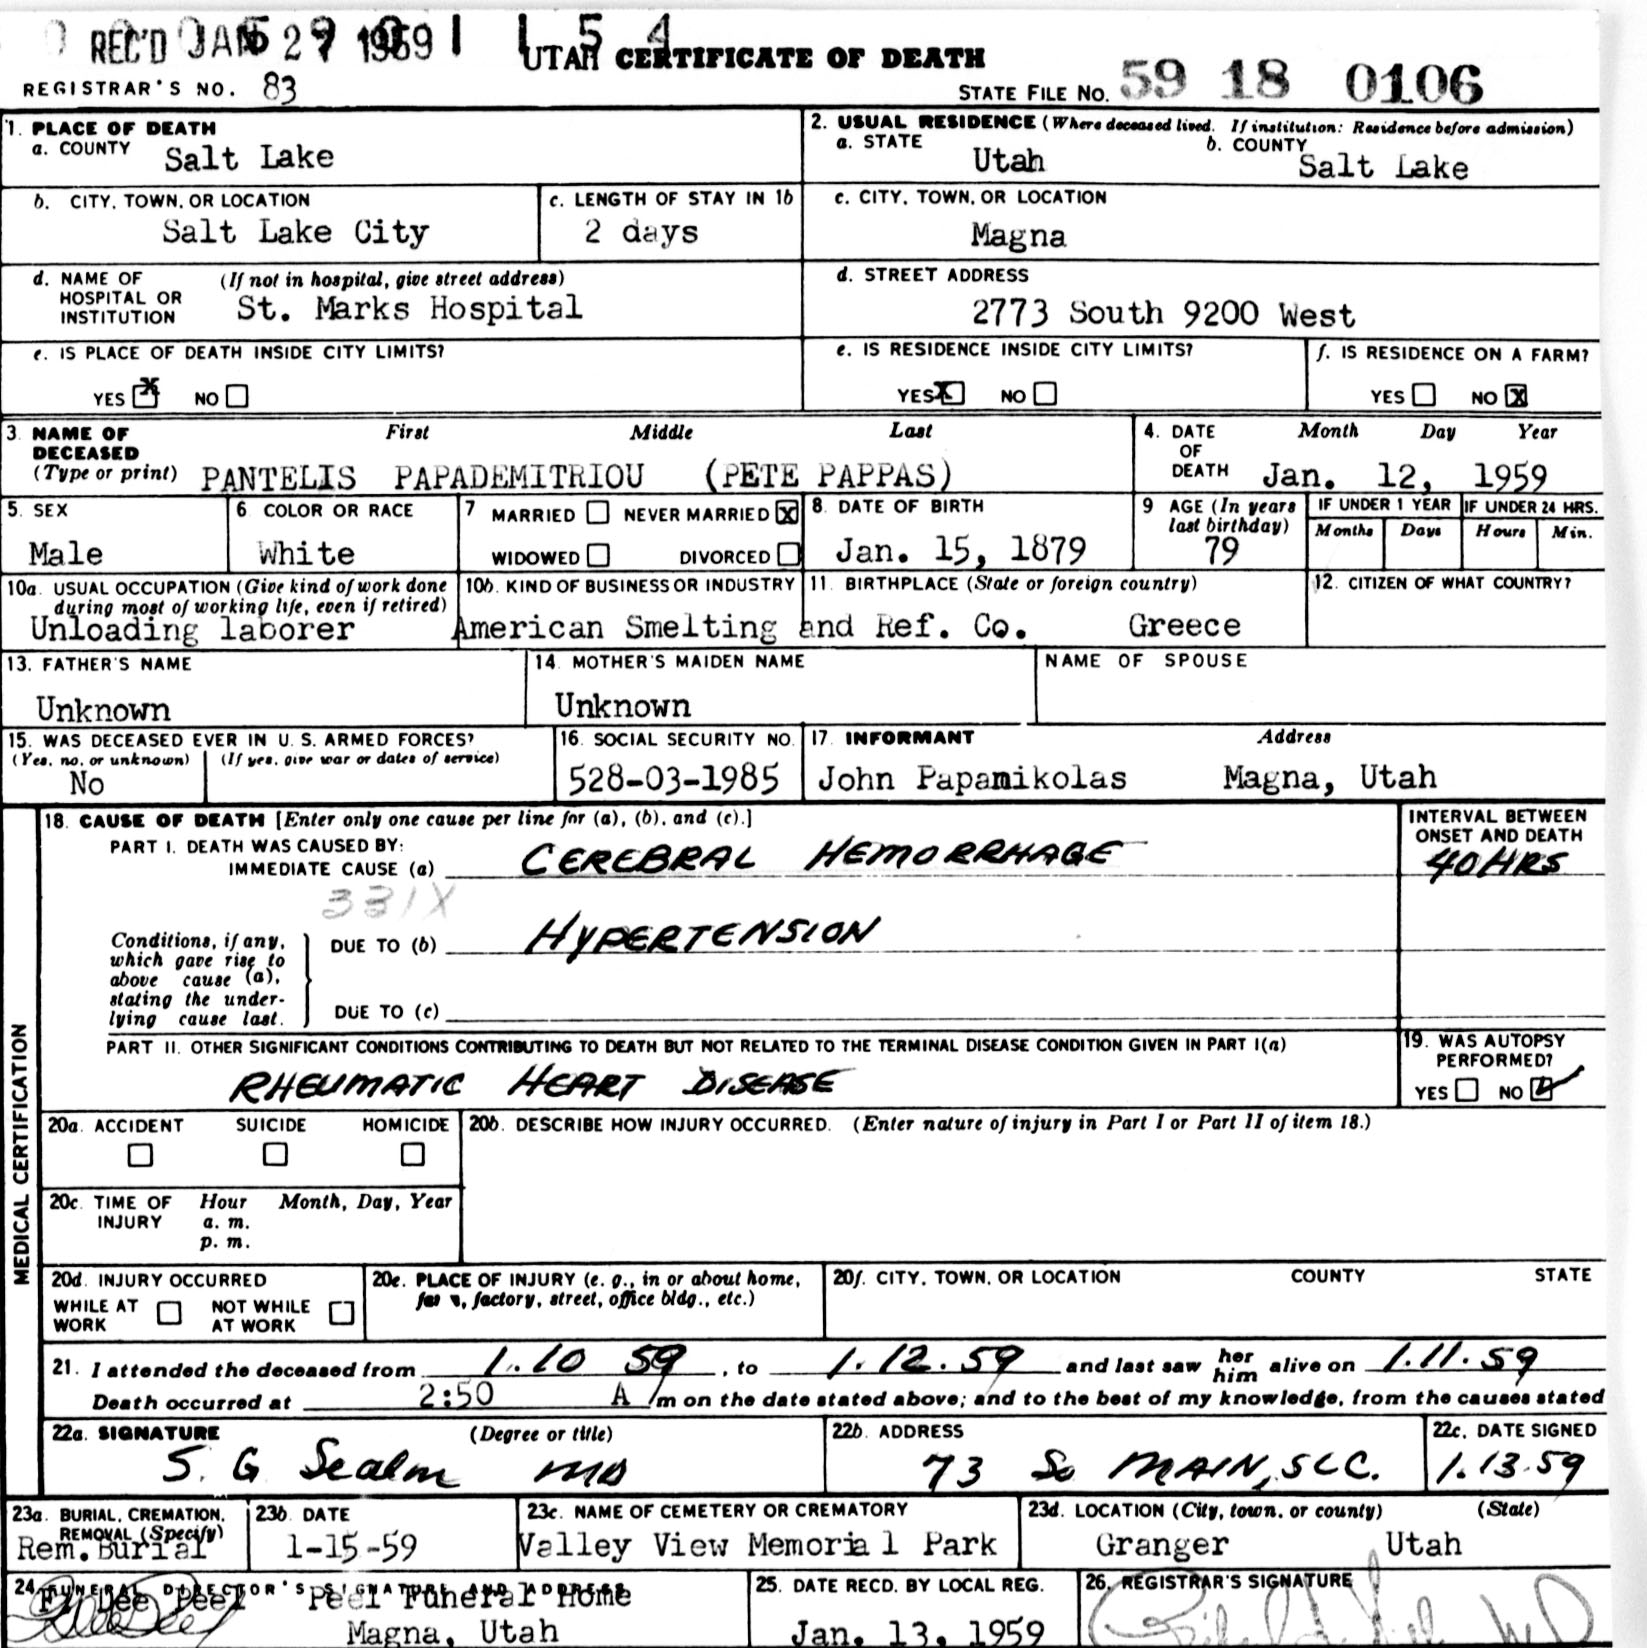 REC'D JAN 27 1959
UTAH CERTIFICATE OF DEATH
REGISTRAR'S NO. 83
STATE FILE NO. 59 18 0106
1. PLACE OF DEATH
a. COUNTY Salt Lake
2. USUAL RESIDENCE (Where deceased lived. If institution: Residence before admission)
a. STATE Utah b. COUNTY Salt Lake
b. CITY, TOWN, OR LOCATION Salt Lake City
c. LENGTH OF STAY IN 1b 2 days
c. CITY, TOWN, OR LOCATION Magna
d. NAME OF HOSPITAL OR INSTITUTION (If not in hospital, give street address) St. Marks Hospital
d. STREET ADDRESS 2773 South 9200 West
e. IS PLACE OF DEATH INSIDE CITY LIMITS? YES X NO
e. IS RESIDENCE INSIDE CITY LIMITS? YES X NO
f. IS RESIDENCE ON A FARM? YES NO X
3. NAME OF DECEASED (Type or print) First Middle Last
PANTELIS PAPADEMITRIOU (PETE PAPPAS)
4. DATE OF DEATH Month Day Year
Jan. 12, 1959
5. SEX Male
6 COLOR OR RACE White
7 MARRIED NEVER MARRIED X WIDOWED DIVORCED
8. DATE OF BIRTH Jan. 15, 1879
9 AGE (In years last birthday) 79
IF UNDER 1 YEAR Months Days
IF UNDER 24 HRS. Hours Min.
10a. USUAL OCCUPATION (Give kind of work done during most of working life, even if retired) Unloading laborer
10b. KIND OF BUSINESS OR INDUSTRY American Smelting and Ref. Co.
11. BIRTHPLACE (State or foreign country) Greece
12. CITIZEN OF WHAT COUNTRY?
13. FATHER'S NAME Unknown
14. MOTHER'S MAIDEN NAME Unknown
NAME OF SPOUSE
15. WAS DECEASED EVER IN U. S. ARMED FORCES? (Yes, no, or unknown) (If yes, give war or dates of service) No
16. SOCIAL SECURITY NO. 528-03-1985
17. INFORMANT Address
John Papanikolas Magna, Utah
MEDICAL CERTIFICATION
18. CAUSE OF DEATH [Enter only one cause per line for (a), (b), and (c).]
INTERVAL BETWEEN ONSET AND DEATH
PART I. DEATH WAS CAUSED BY:
IMMEDIATE CAUSE (a) CEREBRAL HEMORRHAGE 40 HRS
331X
Conditions, if any, which gave rise to above cause (a), stating the underlying cause last.
DUE TO (b) HYPERTENSION
DUE TO (c)
PART II. OTHER SIGNIFICANT CONDITIONS CONTRIBUTING TO DEATH BUT NOT RELATED TO THE TERMINAL DISEASE CONDITION GIVEN IN PART I(a)
RHEUMATIC HEART DISEASE
19. WAS AUTOPSY PERFORMED? YES NO ✓
20a. ACCIDENT SUICIDE HOMICIDE
20b. DESCRIBE HOW INJURY OCCURRED. (Enter nature of injury in Part I or Part II of item 18.)
20c. TIME OF INJURY Hour Month, Day, Year
a. m.
p. m.
20d. INJURY OCCURRED
WHILE AT WORK NOT WHILE AT WORK
20e. PLACE OF INJURY (e. g., in or about home, farm, factory, street, office bldg., etc.)
20f. CITY, TOWN, OR LOCATION COUNTY STATE
21. I attended the deceased from 1.10 59, to 1.12.59 and last saw her him alive on 1.11.59
Death occurred at 2:50 A m on the date stated above; and to the best of my knowledge, from the causes stated
22a. SIGNATURE (Degree or title)
S. G MD
22b. ADDRESS 73 So MAIN, SLC.
22c. DATE SIGNED 1.13.59
23a. BURIAL, CREMATION, REMOVAL (Specify) Rem. Burial
23b. DATE 1-15-59
23c. NAME OF CEMETERY OR CREMATORY Valley View Memorial Park
23d. LOCATION (City, town, or county) (State)
Granger Utah
24. FUNERAL DIRECTOR'S SIGNATURE AND ADDRESS
Dee Peel Peel Funeral Home
Magna, Utah
25. DATE RECD. BY LOCAL REG. Jan. 13, 1959
26. REGISTRAR'S SIGNATURE